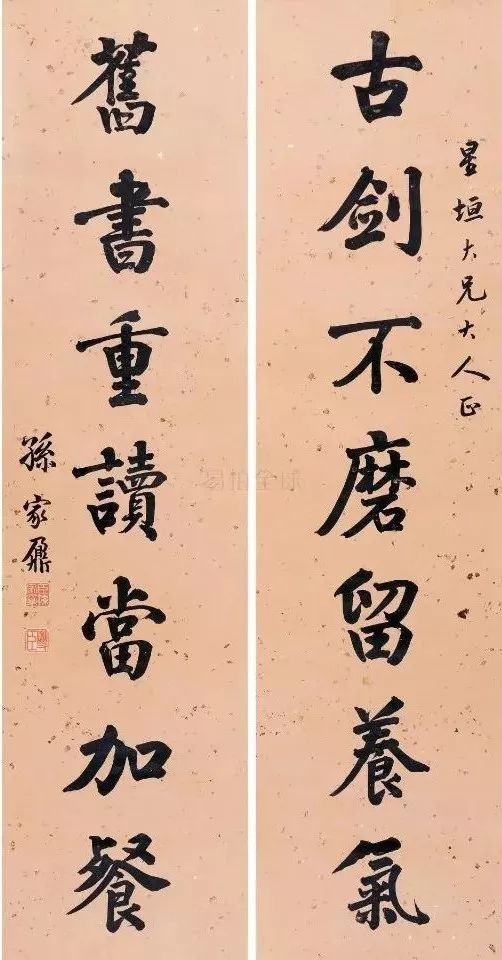 星垣大兄大人正
古劍不磨留養氣
舊書重讀當加餐
孫家鼐
易拍全球